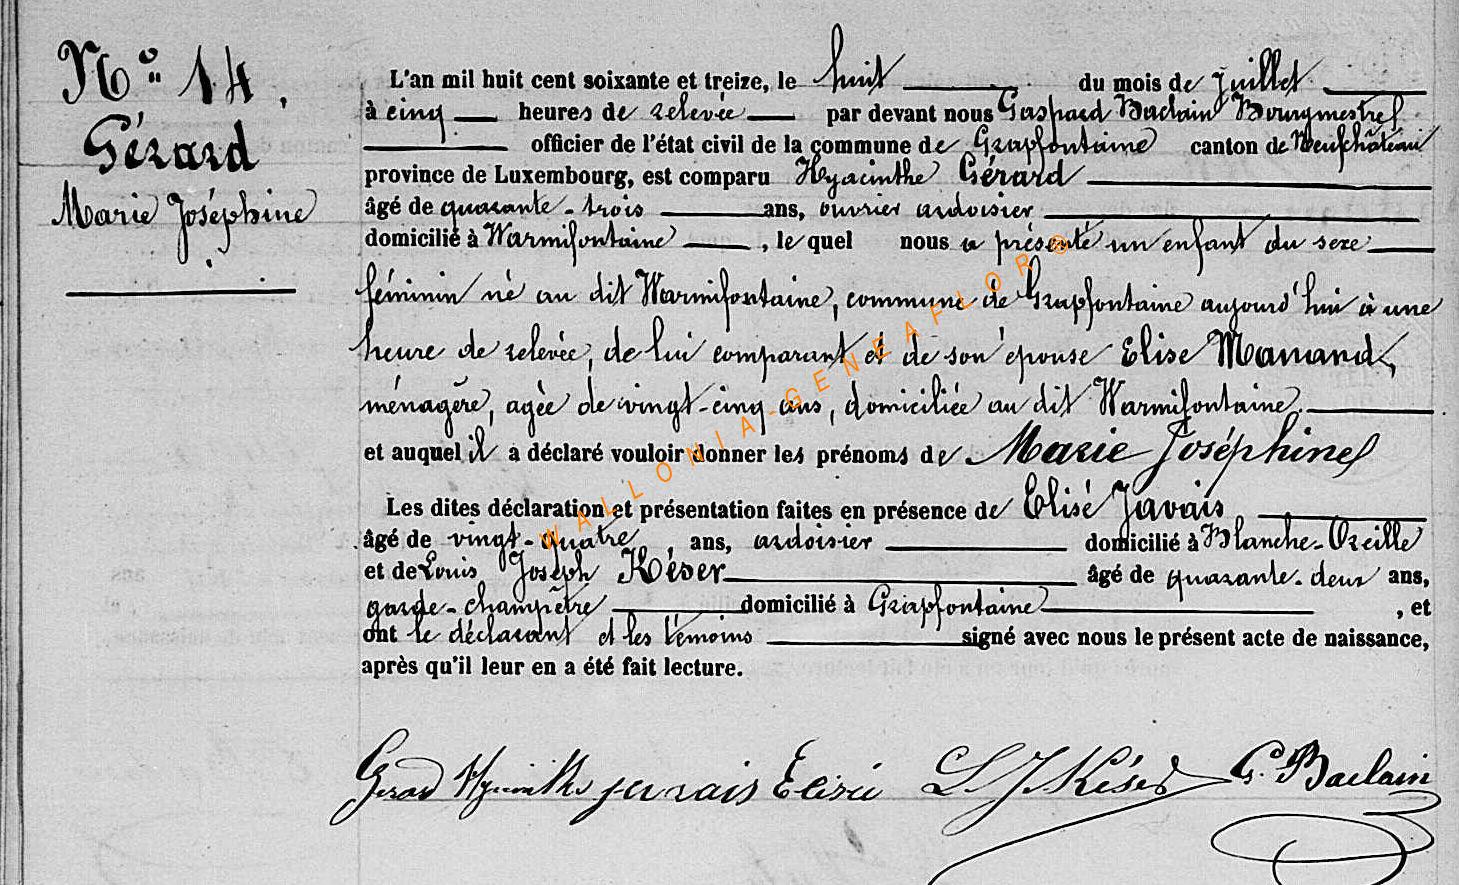 N° 14.
Gérard
Marie Joséphine
L'an mil huit cent soixante et treize, le huit du mois de Juillet
à cinq heures de relevée par devant nous Gaspard Baclain Bourgmestre
officier de l'état civil de la commune de Grapfontaine canton de Neufchâteau
province de Luxembourg, est comparu Hyacinthe Gérard
âgé de quarante-trois ans, ouvrier ardoisier
domicilié à Warmifontaine, le quel nous a présenté un enfant du sexe
féminin né au dit Warmifontaine, commune de Grapfontaine aujourd'hui à une
heure de relevée, de lui comparant et de son épouse Elise Mamand,
ménagère, agée de vingt-cinq ans, domiciliée au dit Warmifontaine.
et auquel il a déclaré vouloir donner les prénoms de Marie Joséphine
Les dites déclaration et présentation faites en présence de Elisé Javais
âgé de vingt-quatre ans, ardoisier domicilié à Blanche-Oreille
et de Louis Joseph Késer âgé de quarante-deux ans,
garde-champêtre domicilié à Grapfontaine, et
ont le déclarant et les témoins signé avec nous le présent acte de naissance,
après qu'il leur en a été fait lecture.
Gerard Hyacinthe javais Elisée L J Késer G. Baclain
WALLONIA-GENEAFLOR©